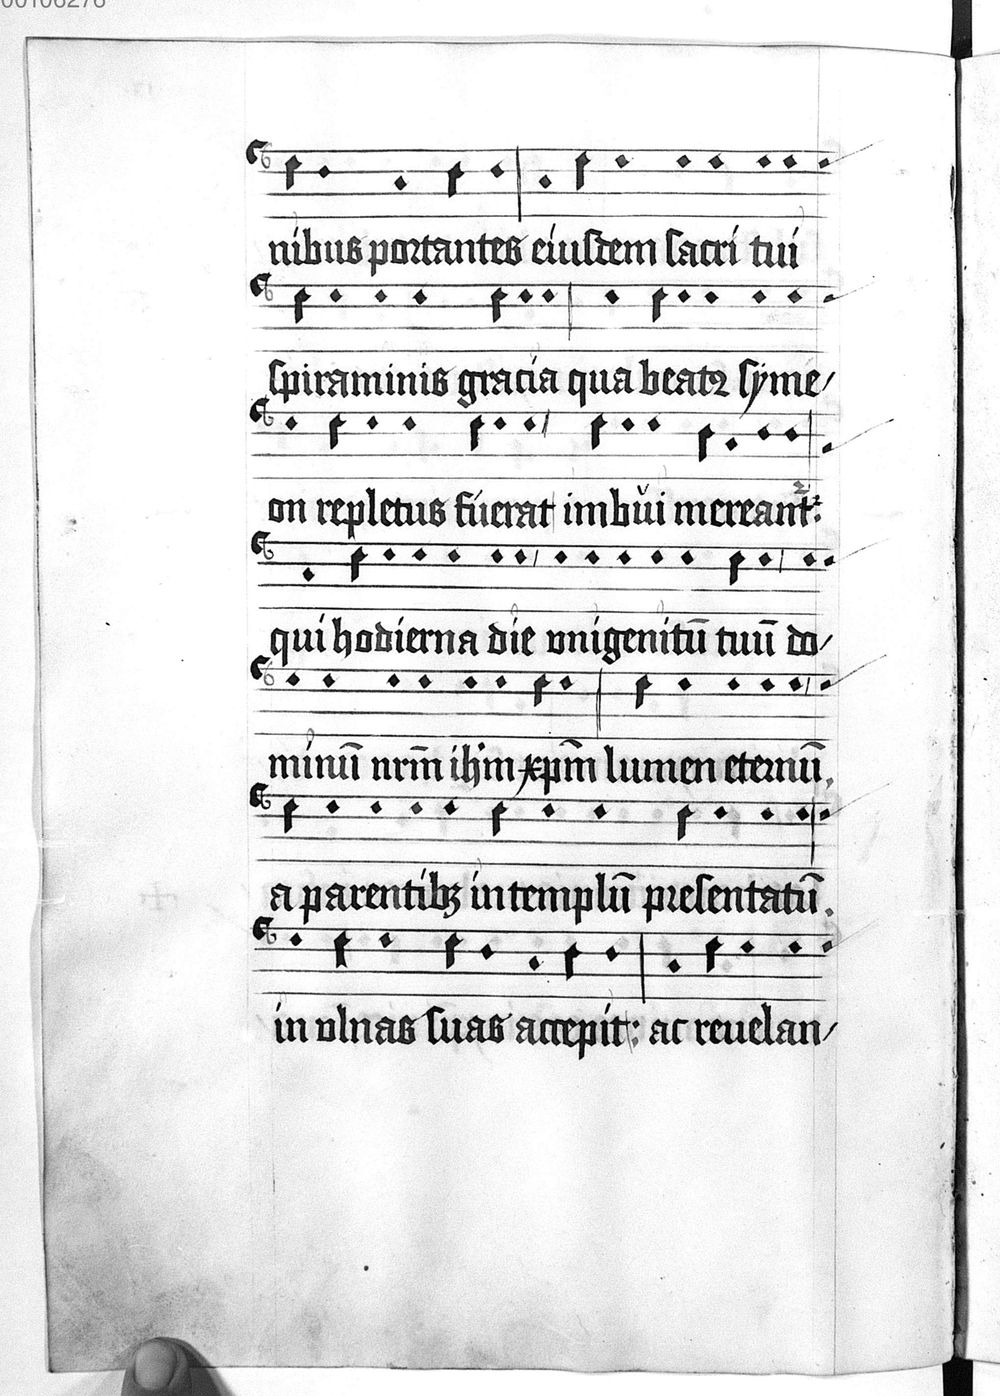 00106276
nibus portantes eiusdem sacri tui
spiraminis gracia qua beatꝰ syme/
on repletus fuerat imbui mereantᷣ:
qui hodierna die vnigenitū tuū do/
minū nrm̄ ihm̄ xp̄m lumen eternū.
a parentibꝫ in templū presentatū.
in vlnas suas accepit: ac reuelan/